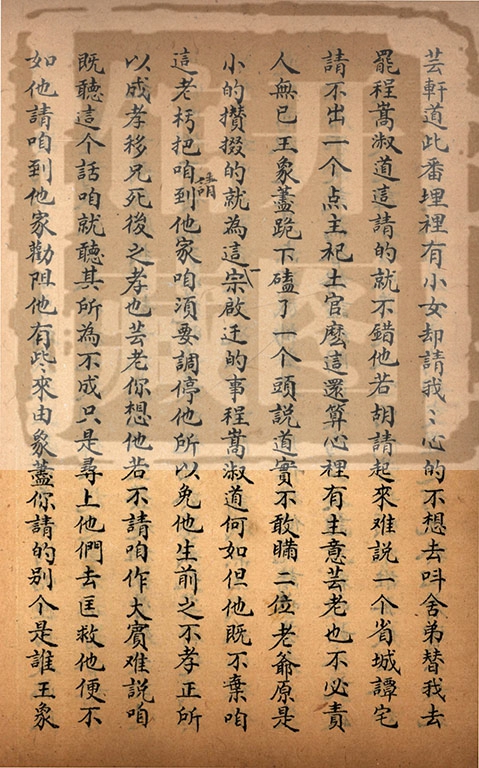 芸軒道此番埋裡有小女却請我〻心的不想去呌舍弟替我去
罷程嵩淑道這請的就不錯他若胡請起來难説一个省城譚宅
請不出一个点主祀土官庅這還算心裡有主意芸老也不必責
人無已王象藎跪下磕了一个頭説道實不敢瞞二位老爺原是
小的攢掇的就為這宗啟迁的事程嵩淑道何如但他既不棄咱
這老朽把咱請到他家咱湏要調停他所以免他生前之不孝正所
以成孝移兄死後之孝也芸老你想他若不請咱作大賓难説咱
既聽這个話咱就聽其所為不成只是尋上他們去匡救他便不
如他請咱到他家勸阻他有些〻來由象藎你請的别个是誰王象